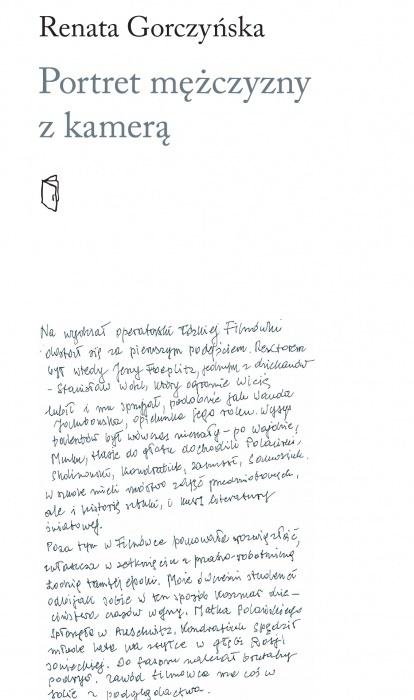 Renata Gorczyńska
Portret mężczyzny
z kamerą
Na wydział operatorski łódzkiej Filmówki
dostał się za pierwszym podejściem. Rektorem
był wtedy Jerzy Toeplitz, jednym z dziekanów
- Stanisław Wohl, który ogromnie Wicię
lubił i mu sprzyjał, podobnie jak Wanda
Jakubowska, opiekunka jego roku. Wysyp
talentów był wówczas niemały - po Wajdzie,
Munku, Hasie do głosu dochodzili Polański,
Skolimowski, Kondratiuk, Zanussi,
W szkole mieli mnóstwo zajęć przedmiotowych,
ale i historię sztuki, i kurs literatury
światowej.
Poza tym w Filmówce panowała rozwiązłość,
zwłaszcza w zetknięciu z pruderią robotniczej
Łodzi tamtej epoki. Może ówcześni studenci
odbijali sobie w ten sposób koszmar dzie-
ciństwa czasów wojny. Matka Polańskiego
spłonęła w Auschwitz. Kondratiuk spędził
młode lata na zsyłce w głębi Rosji
sowieckiej. Do fasonu należał brutalny
podryw. Zawód filmowca ma coś w
sobie z podglądactwa.